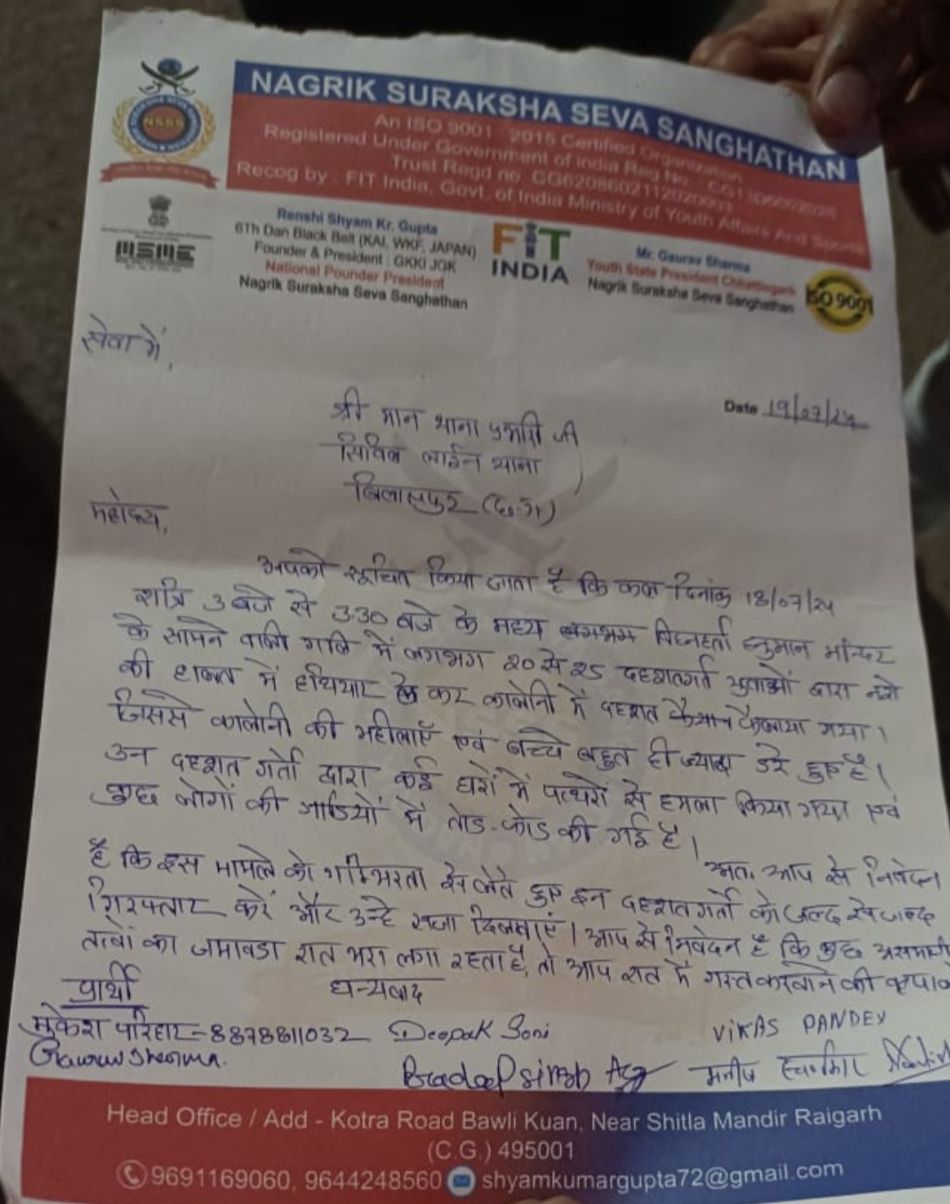 NAGRIK SURAKSHA SEVA SANGHATHAN
An ISO 9001 2015 Certified Organization
Registered Under Government of India Reg No.
Trust Regd no.
Recog by : FIT India, Govt. of India Ministry of Youth Affairs And Sports
NSSS
MSME
Renshi Shyam Kr. Gupta
6Th Dan Black Belt (KAI, WKF, JAPAN)
Founder & President : GKKI JGK
National Pounder President
Nagrik Suraksha Seva Sanghathan
FIT
INDIA
Mr. Gaurav Sharma
Youth State President Chhattisgarh
Nagrik Suraksha Seva Sanghathan
ISO 9001
सेवा में,
Date 19/07/24
श्री मान थाना प्रभारी जी
सिविल लाईन थाना
बिलासपुर (छ.ग)
महोदय,
आपको सूचित किया जाता है कि कल दिनांक 18/07/24
रात्रि 3 बजे से 3:30 बजे के मध्य लगभग विघ्नहर्ता हनुमान मन्दिर
के सामने वाली गलि में लगभग 20 से 25 दहशतगर्त युवाओं द्वारा नशे
की हालत में हथियार ले कर कालोनी में दहशत फैलाया गया।
जिससे कालोनी की महीलाएँ एवं बच्चे बहुत ही ज्यादा डरे हुए है।
उन दहशत गर्तो द्वारा कई घरों में पत्थरो से हमला किया गया एवं
कुछ लोगों की गाडियों में तोड-फोड की गई है।
अतः आप से निवेदन
है कि इस मामले को गम्भिरता से लेते हुए इन दहशतगर्तो को जल्द से जल्द
गिरफ्तार करें और उन्हे सजा दिलवाएं। आप से निवेदन है कि कुछ असमाजी
तत्वों का जमावडा रात भरा लगा रहता है, तो आप रात में गस्त करवाने की कृपा
प्रार्थी
धन्यवाद
मुकेश परिहार - 8878811032
Deepak Soni
VIKAS PANDEY
Gaurav Sharma.
Pradeep Singh
मनीष
Head Office / Add - Kotra Road Bawli Kuan, Near Shitla Mandir Raigarh
(C.G.) 495001
9691169060, 9644248560 shyamkumargupta72@gmail.com